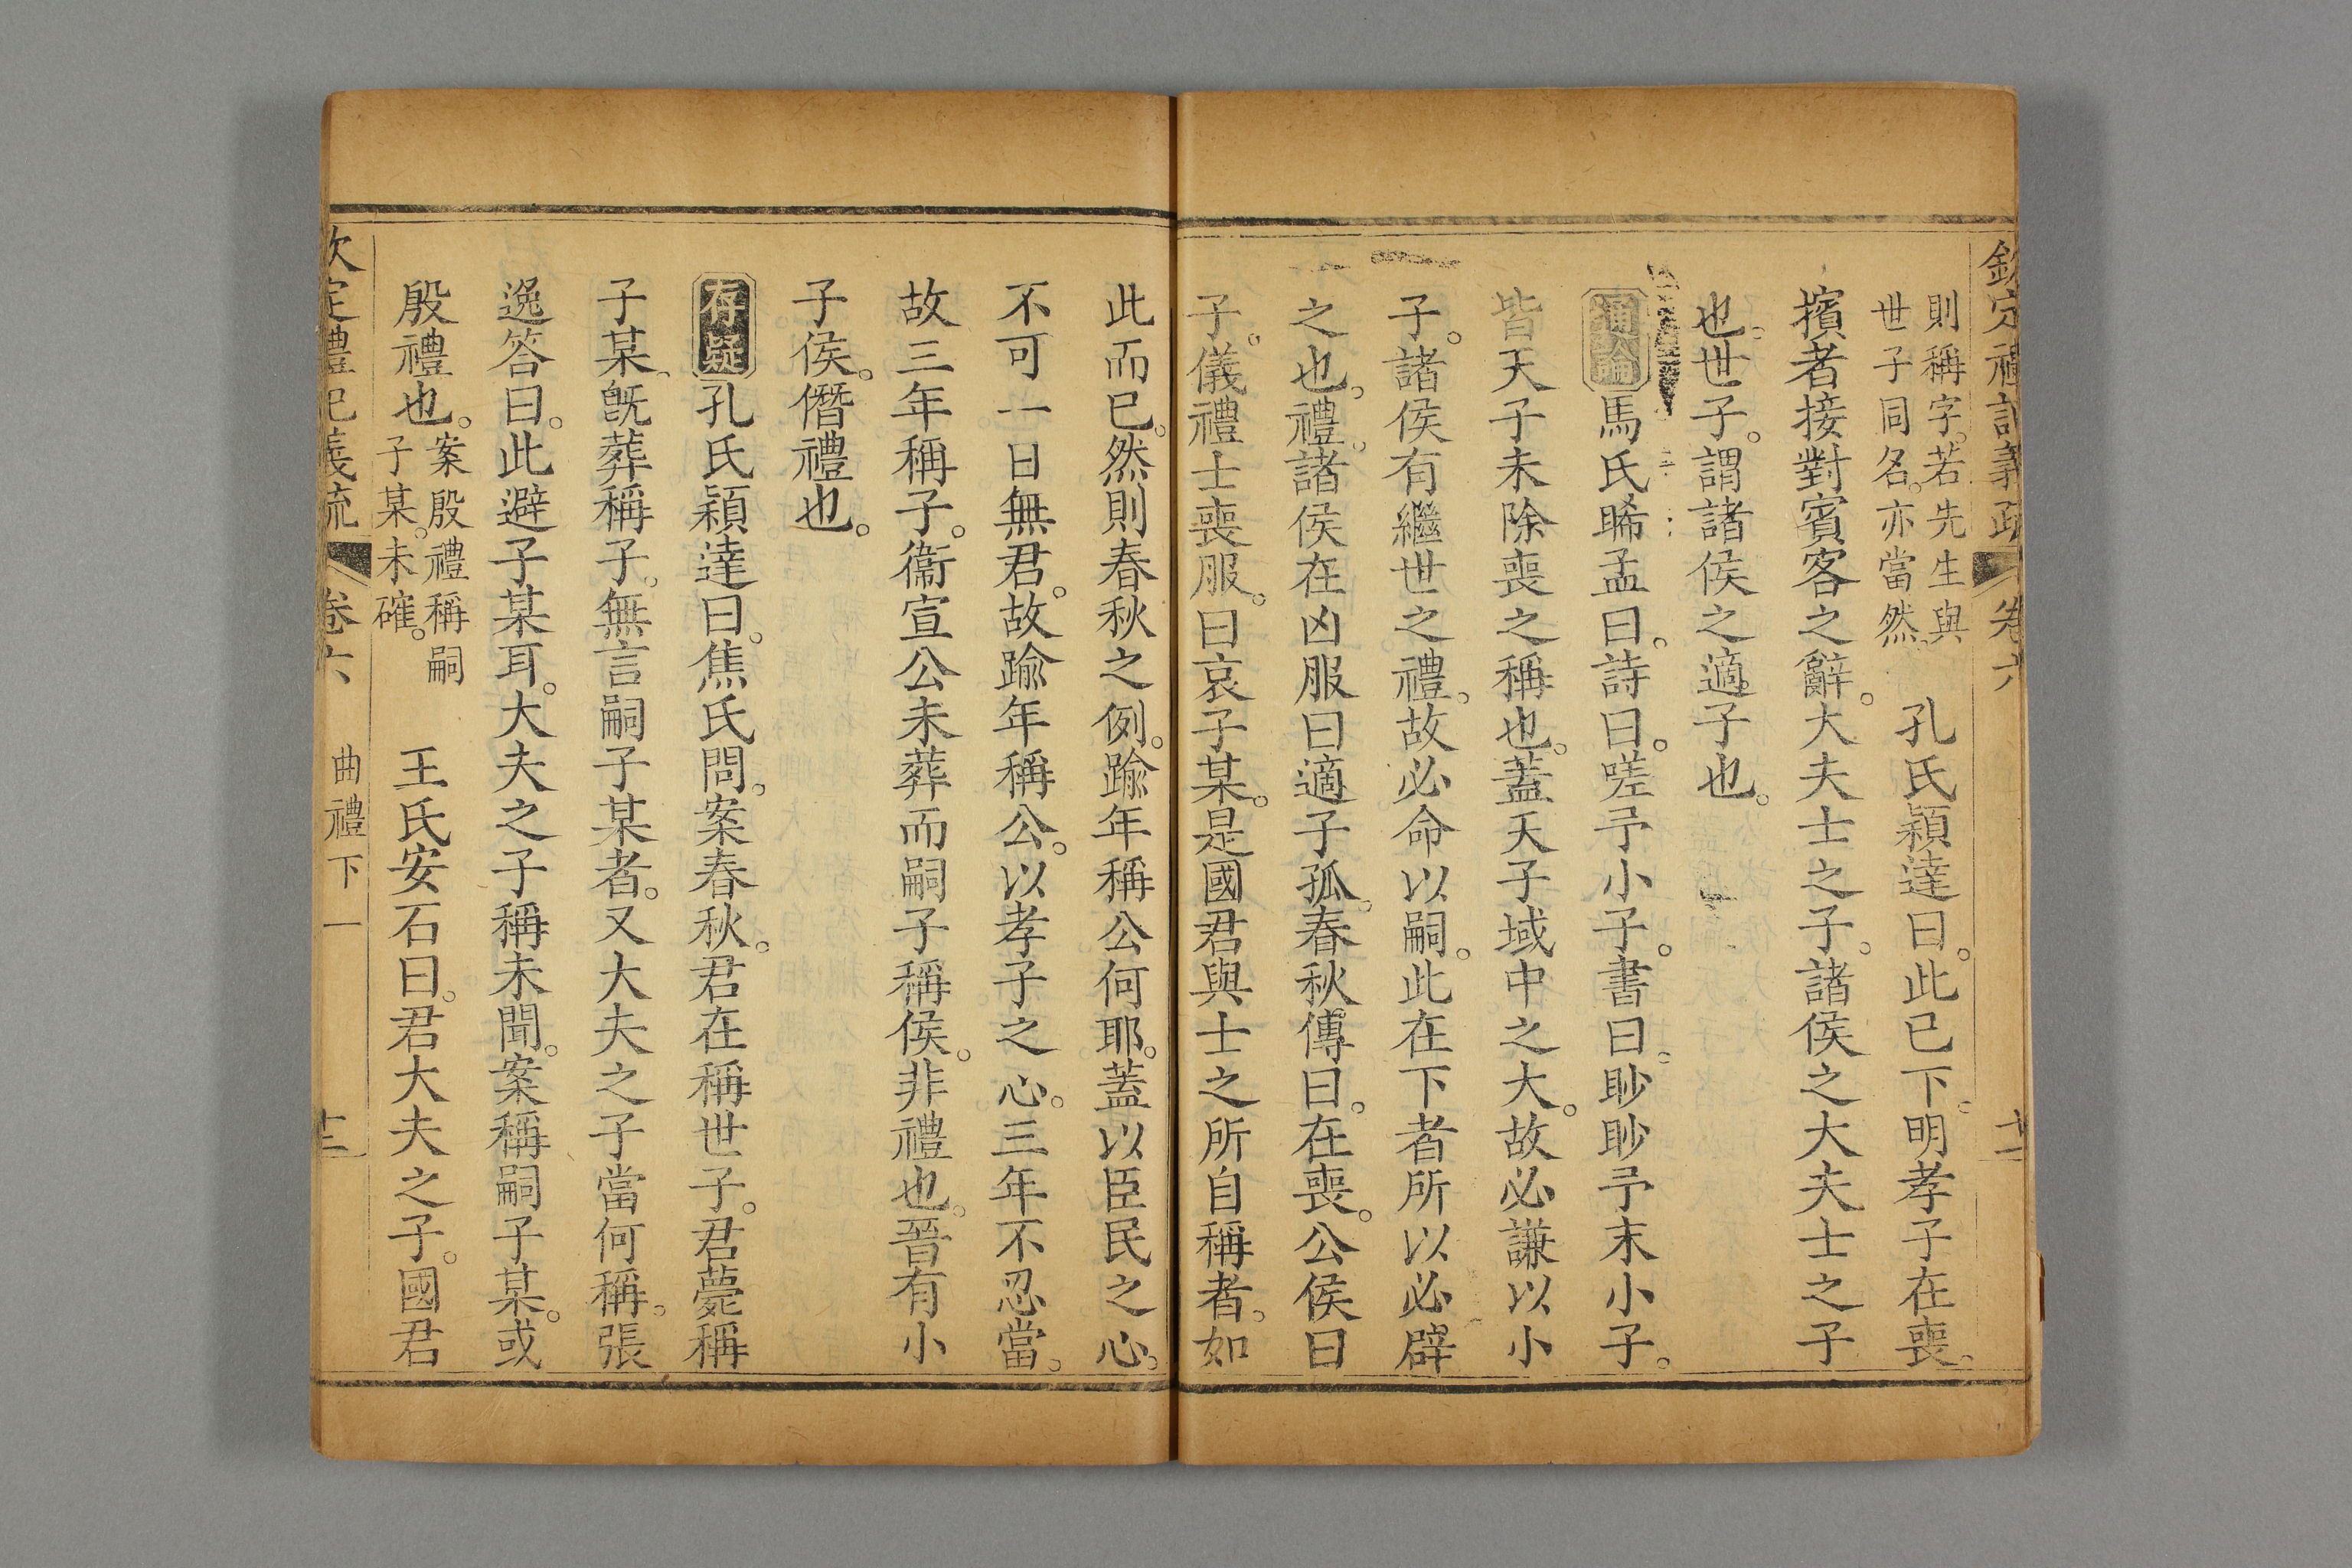 欽定禮記義疏 卷六
則稱字。若先生與
世子同名。亦當然。
孔氏穎達曰。此已下。明孝子在喪。
擯者接對賓客之辭。大夫士之子。諸侯之大夫士之子
也。世子。謂諸侯之適子也。
通論馬氏晞孟曰。詩曰。嗟予小子。書曰。眇眇予末小子。
皆天子未除喪之稱也。蓋天子域中之大。故必謙以小
子。諸侯有繼世之禮。故必命以嗣。此在下者所以必辟
之也。禮。諸侯在凶服曰適子孤。春秋傳曰。在喪。公侯曰
子。儀禮士喪服。曰哀子某。是國君與士之所自稱者。如
此而已。然則春秋之例。踰年稱公何耶。蓋以臣民之心。
不可一日無君。故踰年稱公。以孝子之心。三年不忍當。
故三年稱子。衞宣公未葬而嗣子稱侯。非禮也。晉有小
子侯。僭禮也。
存疑孔氏穎達曰。焦氏問。案春秋。君在稱世子。君薨稱
子某、旣葬稱子。無言嗣子某者。又大夫之子當何稱。張
逸答曰。此避子某耳。大夫之子稱未聞。案稱嗣子某。或
殷禮也。
案殷禮稱嗣
子某。未確。
王氏安石曰。君大夫之子。國君
欽定禮記義疏 卷六 曲禮下一 十二